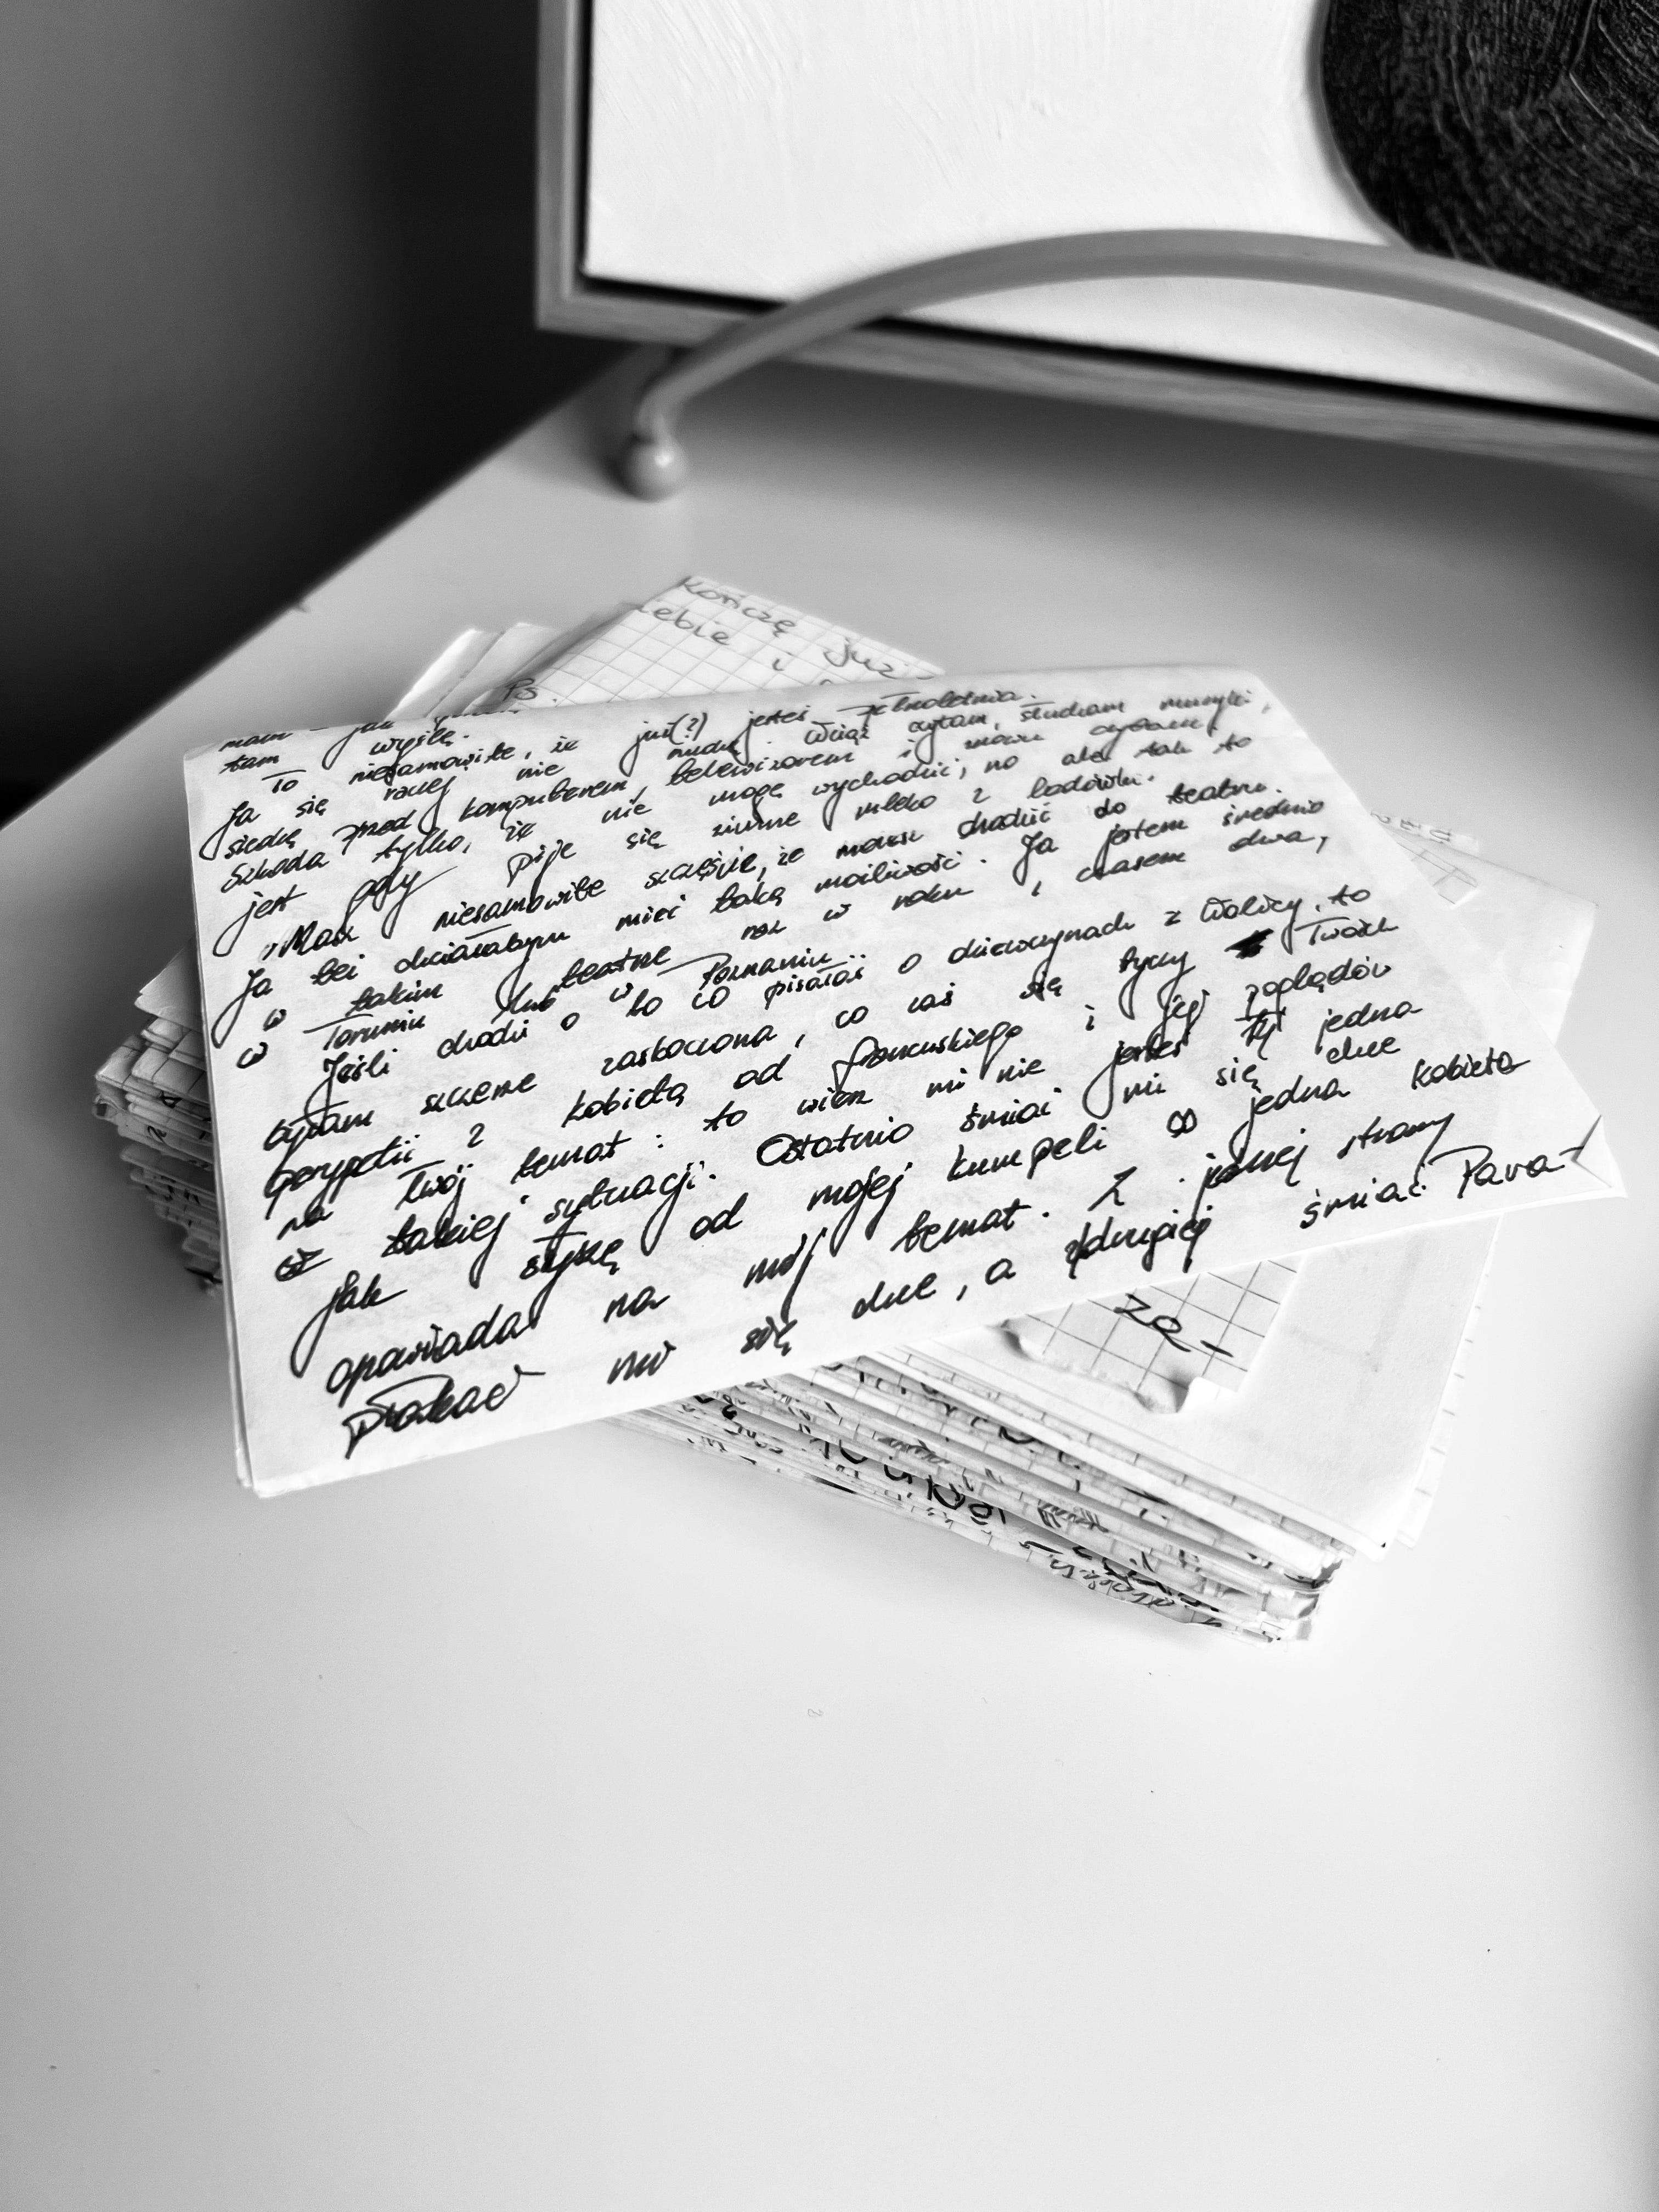 Kończę już
Ciebie i
Ps.
mam – jak
tam wyślę.
To niesamowite, że już(?) jesteś pełnoletnia.
Ja się raczej nie nudzę. Wciąż czytam, słucham muzyki,
siedzę przed komputerem, telewizorem i znowu czytam.
Szkoda tylko, że nie mogę wychodzić, no ale tak to
jest gdy pije się zimne mleko z lodówki.
Masz niesamowite szczęście, że możesz chodzić do teatru.
Ja też chciałabym mieć taką możliwość. Ja jestem średnio
w takim teatrze raz w roku i czasem dwa,
w Toruniu lub w Poznaniu.
Jeśli chodzi o to co pisałaś o dziewczynach z Wolicy, to
byłam szczerze zaskoczona, co zaś się tyczy Twoich
perypetii z kobietą od francuskiego i jej poglądów
na Twój temat: to wiesz mi nie jesteś tą jedna
w takiej sytuacji. Ostatnio śmiać mi się chce
jak słyszę od mojej kumpeli co jedna kobieta
opowiada na mój temat. Z jednej strony
płakać mi się chce, a z drugiej śmiać. Para-
za-